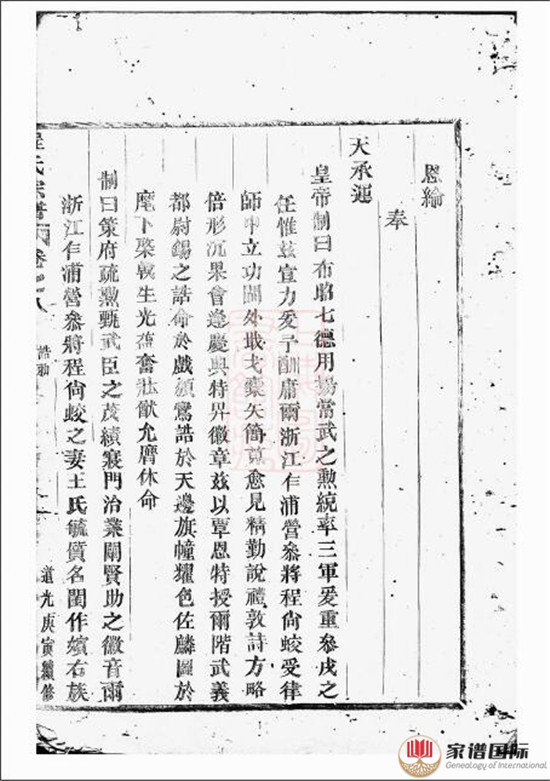 恩綸
奉
天承運
皇帝制曰布昭七德用揚當武之勲統率三軍爰重參戎之
任惟兹宣力爰予酬庸爾浙江乍浦營參將程尙蛟受律
師中立功閫外戢戈櫜矢簡蒐愈見精勤說禮敦詩方略
倍形沉果會逢慶典特昇徽章兹以覃恩特授爾階武義
都尉錫之誥命於戲頒鸞誥於天邊旗幢耀色佐麟圖於
麾下棨戟生光益奮壯猷允膺休命
制曰策府疏勲甄武臣之茂績寢門治業闡賢助之徽音爾
浙江乍浦營參將程尙蛟之妻王氏毓質名閨作嬪右族
程氏宗譜 卷之八 誥勅
道光庚寅續修
家谱国际
Genealogy of International